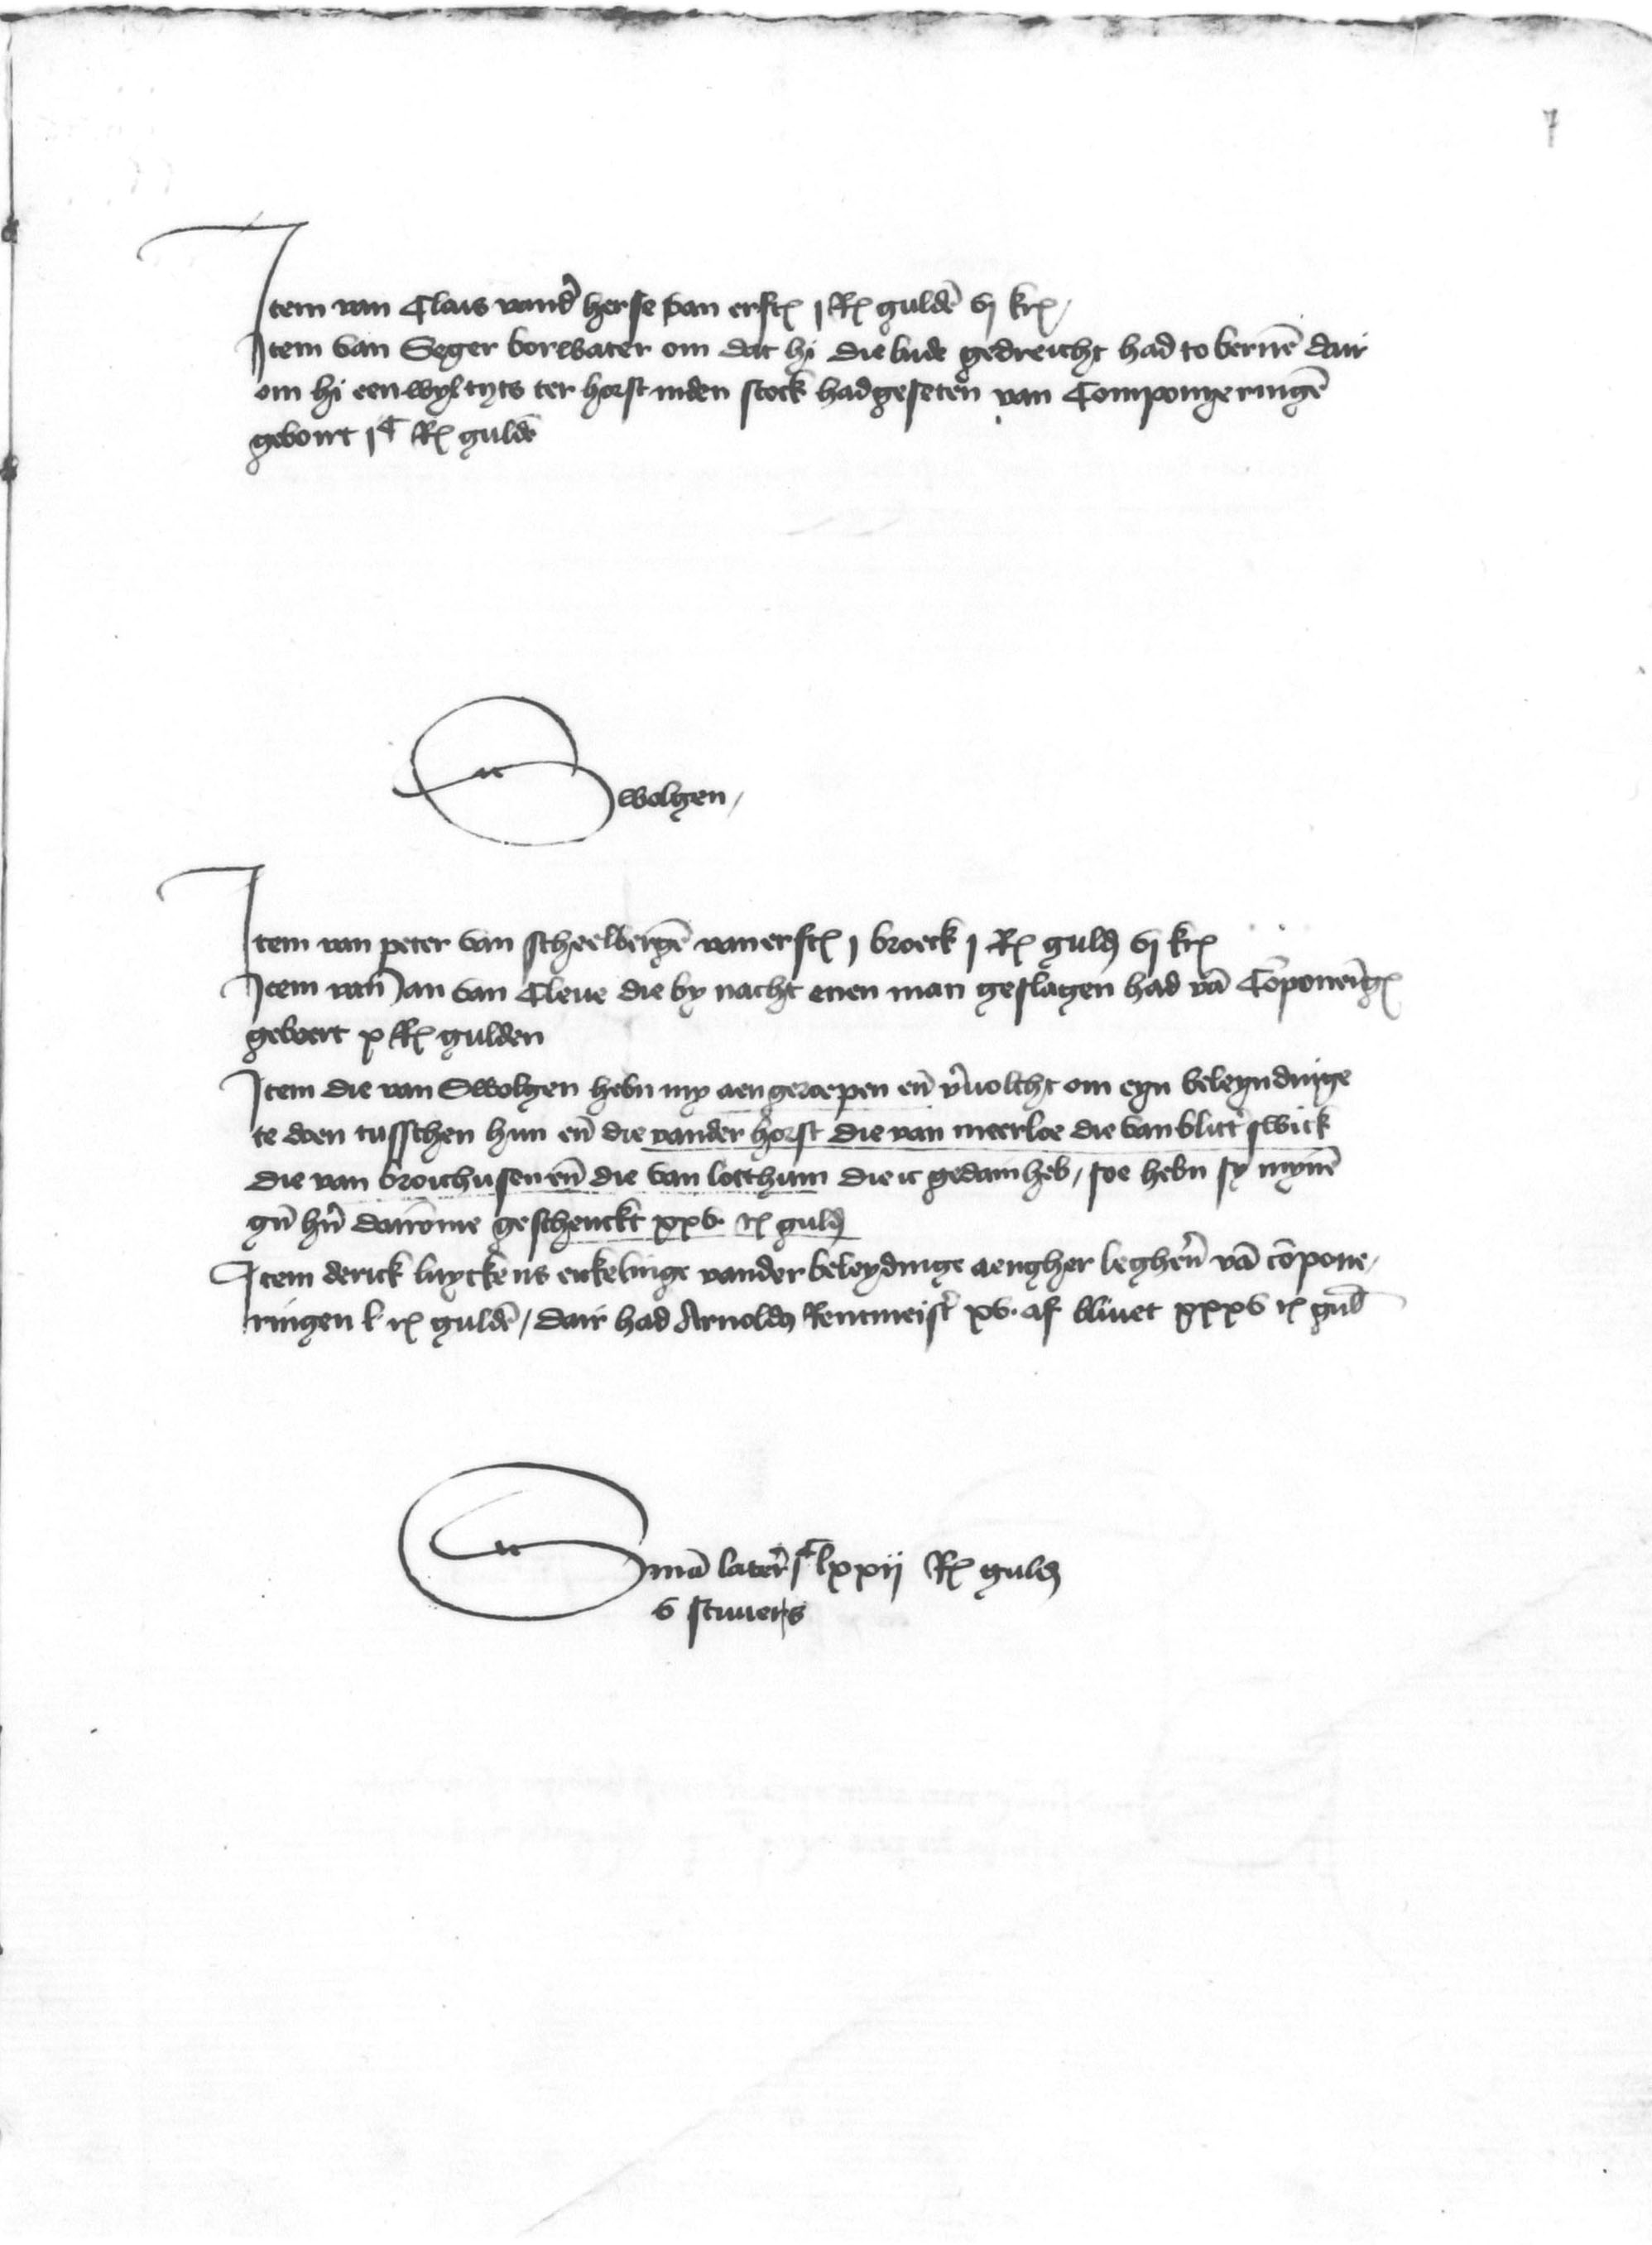 7
Item van Claus vand' herse van erft℞ j R℞ guldē vj kr℞
Item van Seger vorwater om dat hi die lude gedreicht had to bernē dair
om hi een wyl tyts ter horst inden stock had geseten van Componyeringē
gebourt jᶜ R℞ guldē
Swolgen
Item van peter van scheelbergē van erft℞ j broeck j R℞ guld vj kr℞
Item van Jan van Cleue die by nacht enen man geslagen had vā Cōponerīg℞
geboert x R℞ gulden
Item die van Swolgen hebn my aengeroepen eñ v'uolcht om eyn beleyndinge
te doen tusschen hun eñ die vander horst die van meerloe die van blitt'swick
die van broichusen eñ die van lotthum die ic gedain heb, soe hebn sy mynē
gn̄ hn̄ dairōme geschenckt xxv r℞ guld
Item derick luyckens enkelinge vander beleydinge aengher leghen' vā cōpone
ringen l r℞ guldē, dair had Arnold Rentmeist' xv. af bliuet xxxv r℞ guld
Sūmā later' jᶜ lxxij R℞ guld
v stuuers